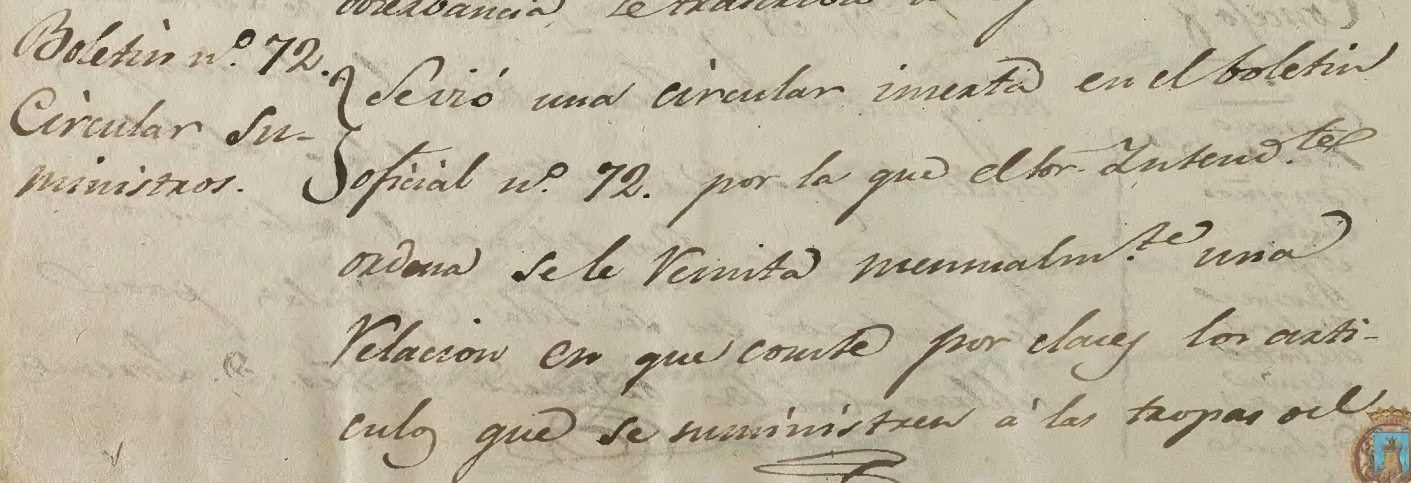 Boletin nº. 72.
Circular Su-
ministros.
Se vió una circular inserta en el boletin
oficial nº. 72. por la que el Sor. Intend.te
ordena se le remita mensualm.te una
relacion en que conste por clases los arti-
culos que se suministren à las tropas del